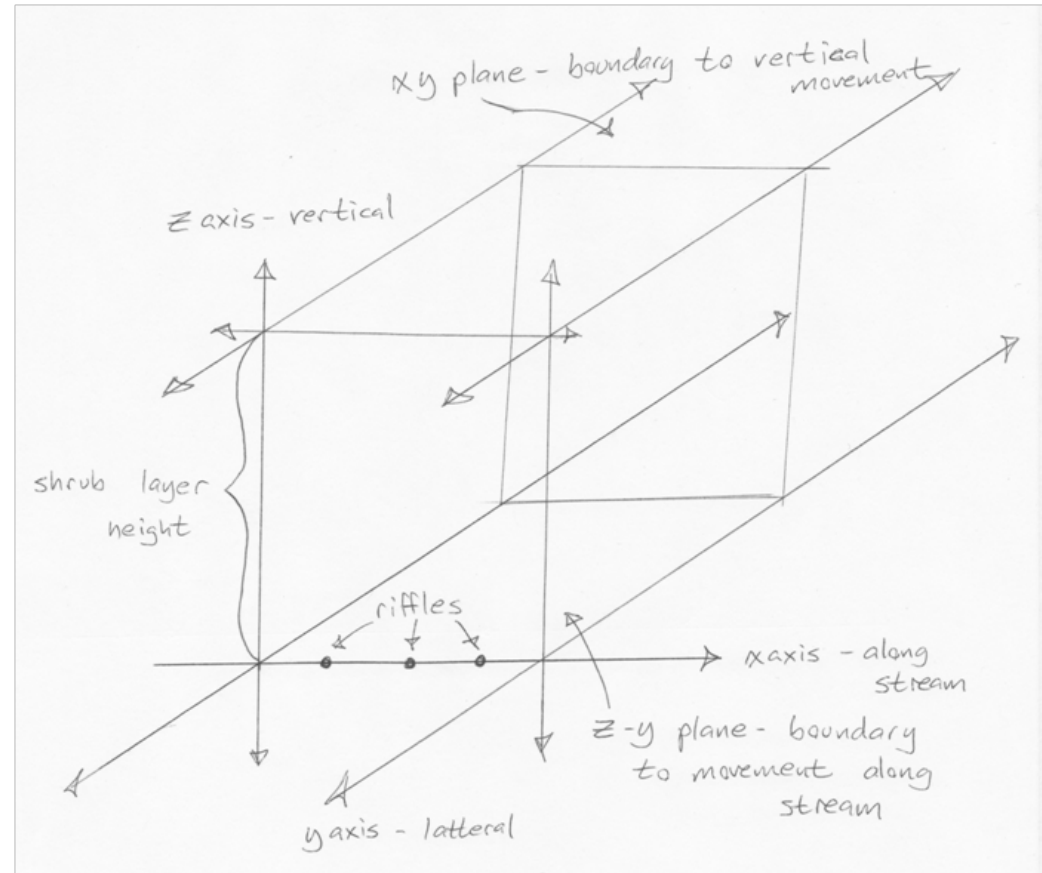 xy plane - boundary to vertical
movement
z axis - vertical
shrub layer
height
riffles
x axis - along
stream
z-y plane - boundary
to movement along
stream
y axis - latteral